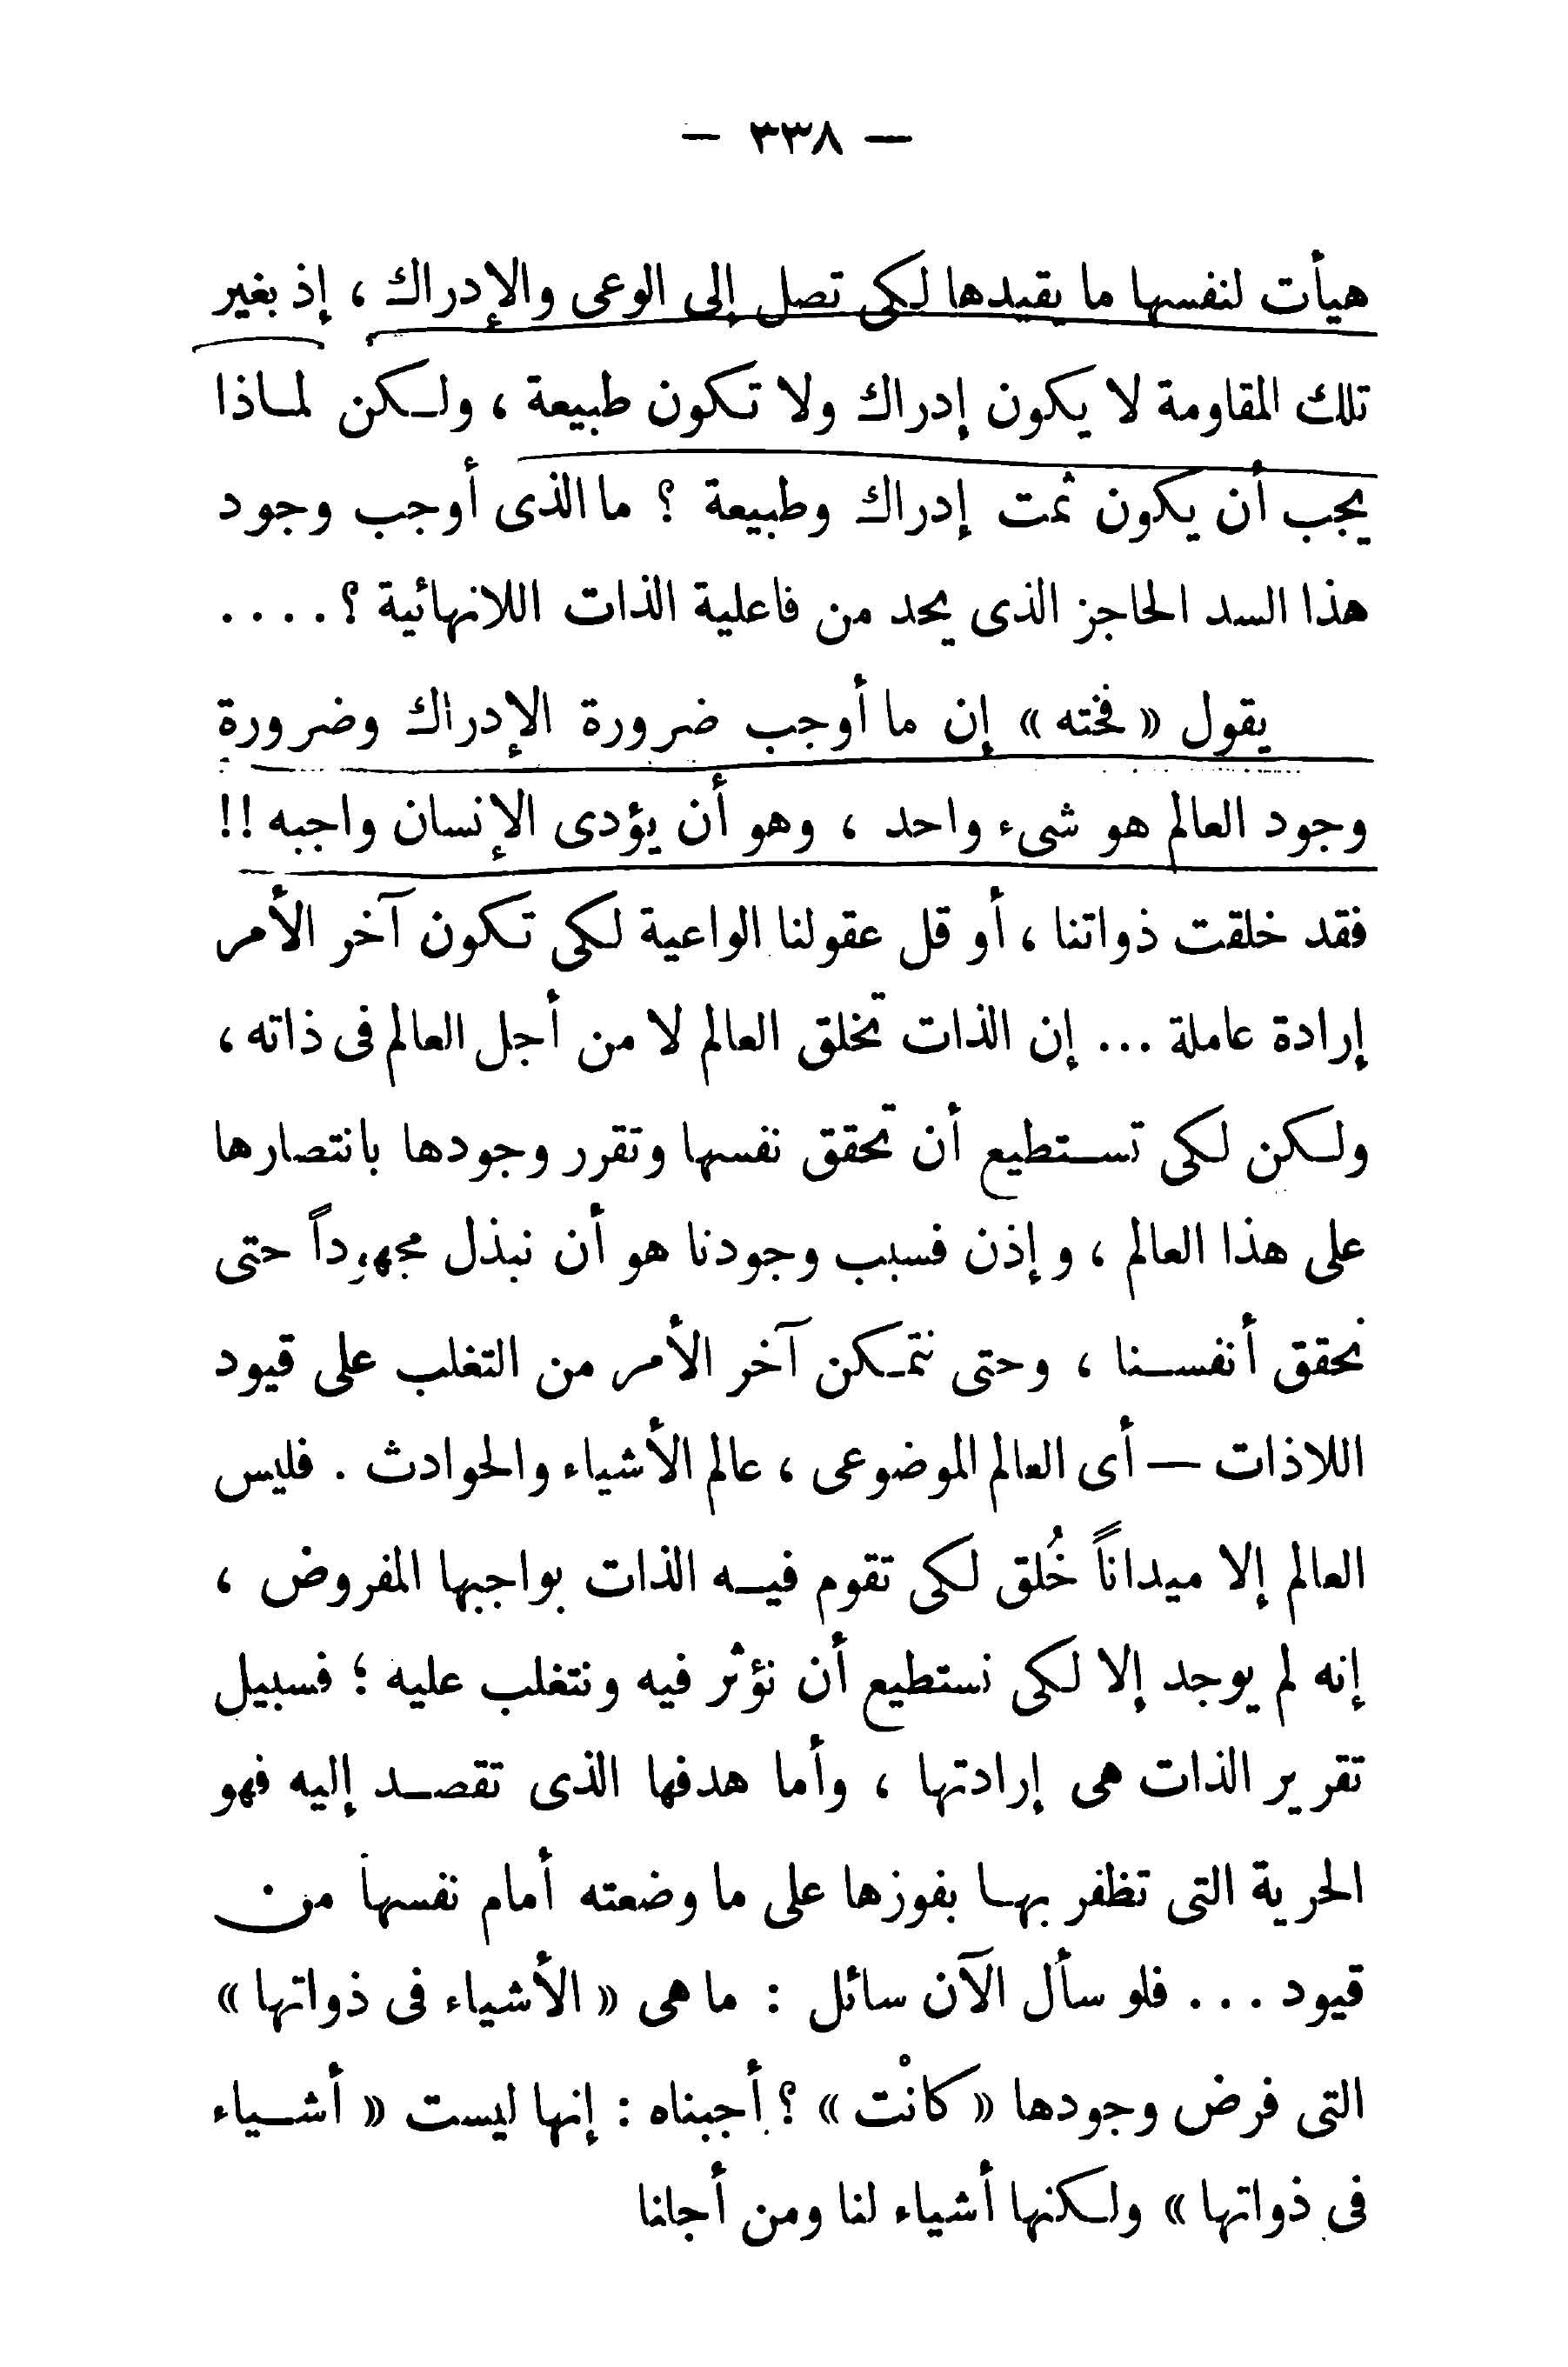 — ٣٣٨ —
هيأت لنفسها ما يقيدها لكى تصل إلى الوعى والإدراك ، إذ بغير
تلك المقاومة لا يكون إدراك ولا تكون طبيعة ، ولكن لماذا
يجب أن يكون ثمت إدراك وطبيعة ؟ ما الذى أوجب وجود
هذا السد الحاجز الذى يحد من فاعلية الذات اللانهائية ؟ . . . .
يقول « فخته » إن ما أوجب ضرورة الإدراك وضرورة
وجود العالم هو شىء واحد ، وهو أن يؤدى الإنسان واجبه !!
فقد خلقت ذواتنا ، أو قل عقولنا الواعية لكى تكون آخر الأمر
إرادة عاملة ... إن الذات تخلق العالم لا من أجل العالم فى ذاته ،
ولكن لكى تستطيع أن تحقق نفسها وتقرر وجودها بانتصارها
على هذا العالم ، وإذن فسبب وجودنا هو أن نبذل مجهوداً حتى
نحقق أنفسنا ، وحتى نتمكن آخر الأمر من التغلب على قيود
اللاذات — أى العالم الموضوعى ، عالم الأشياء والحوادث . فليس
العالم إلا ميداناً خُلق لكى تقوم فيه الذات بواجبها المفروض ،
إنه لم يوجد إلا لكى نستطيع أن نؤثر فيه ونتغلب عليه ؛ فسبيل
تقرير الذات هى إرادتها ، وأما هدفها الذى تقصد إليه فهو
الحرية التى تظفر بها بفوزها على ما وضعته أمام نفسها من
قيود . . . فلو سأل الآن سائل : ما هى « الأشياء فى ذواتها »
التى فرض وجودها « كانْت » ؟ أجبناه : إنها ليست « أشياء
فى ذواتها » ولكنها أشياء لنا ومن أجلنا